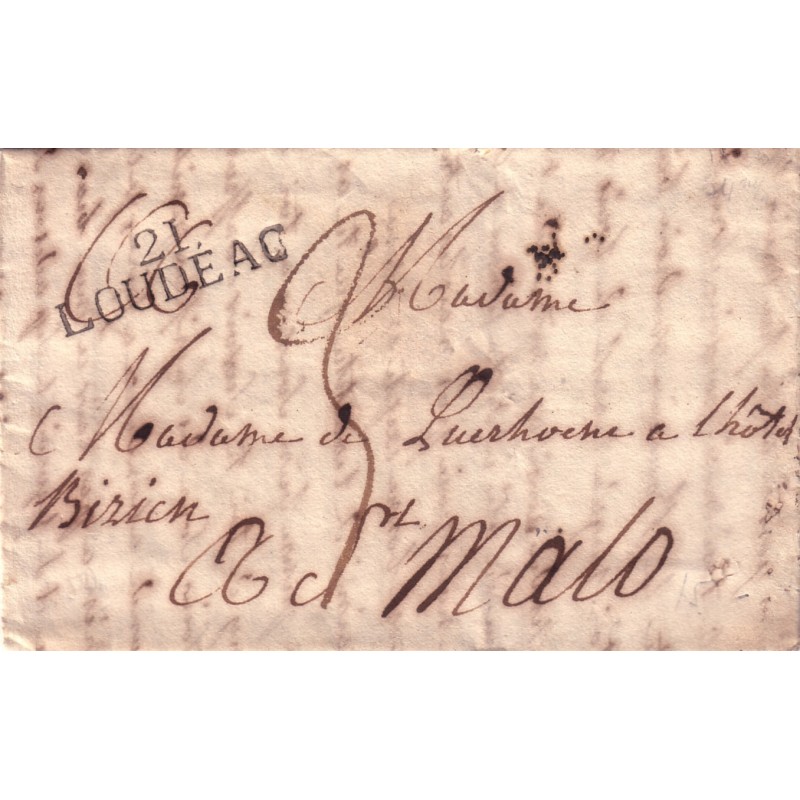 21.
LOUDÉAC
A Madame
Madame de Querhoent a lhôtel
Bizien
A St Malo